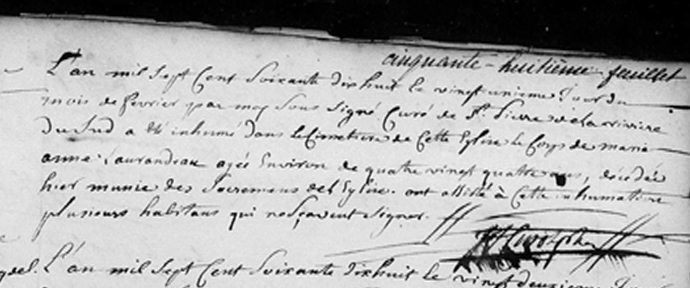 cinquante-huitième feuillet
L'an mil sept Cent Soixante dixhuit le vingt unieme Jour du
mois de fevrier par moy Sous Signé Curé de St. Pierre de la rivierre
du Sud a été inhumé dans le Cimetiere de Cette Eglise le Corps de marie
anne Laurandeau agée Environ de quatre vingt quatre ans, décédée
hier munie des Sacremens de l'Eglise. ont assisté à Cette inhumation
plusieurs habitans qui ne sçavent Signer.
L'an mil Sept Cent Soixante dixhuit le vingt deuxieme